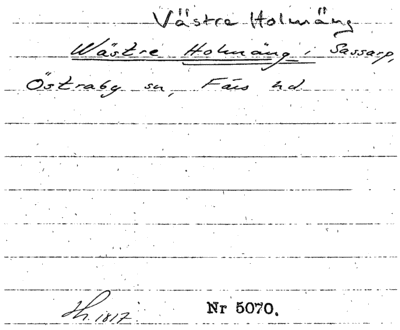 Västre Holmäng
Wästre Holmäng i Sassarp,
Östraby sn, Färs hd
Sk. 1817 Nr 5070.